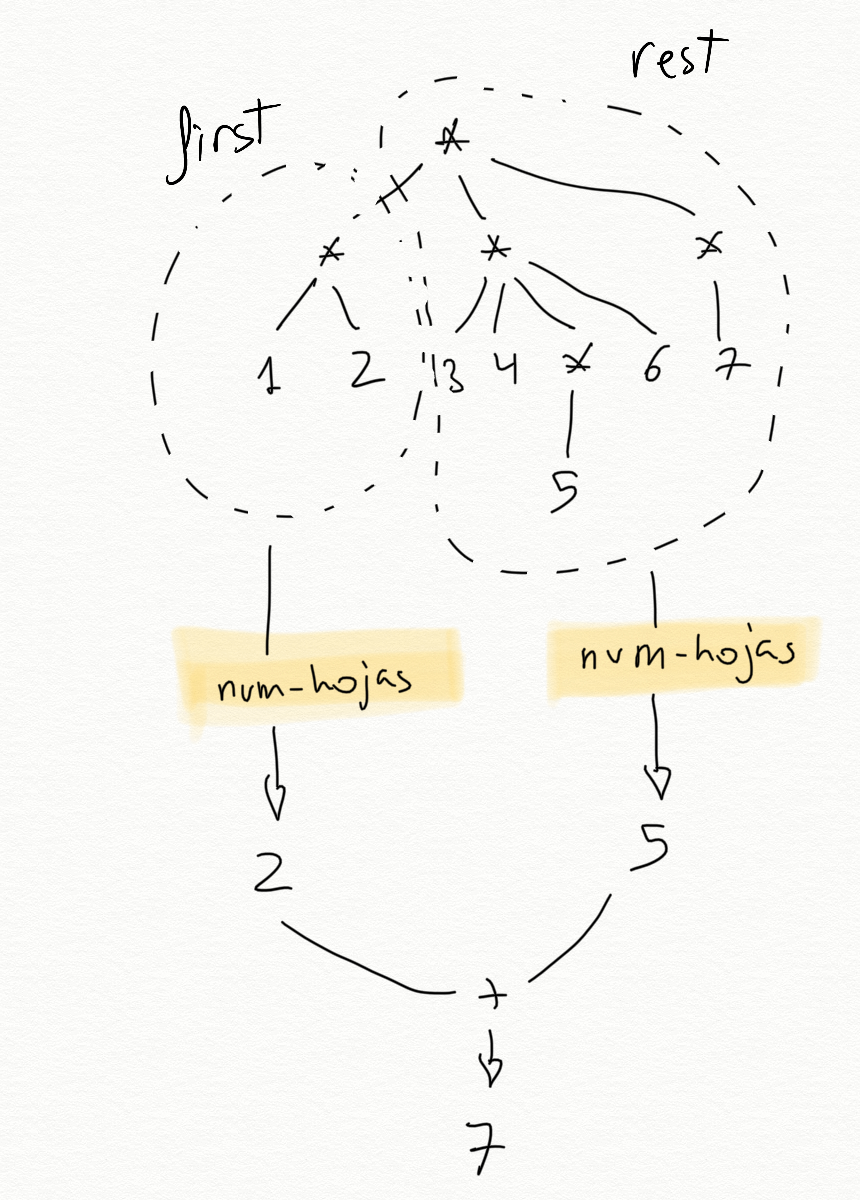 rest
first
*
* * *
1 2 3 4 * 6 7
5
num-hojas num-hojas
2 5
+
7